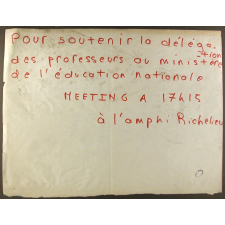 Pour soutenir la déléga-
tion
des professeurs au ministère
de l'éducation nationale
MEETING A 17H15
à l'amphi Richelieu